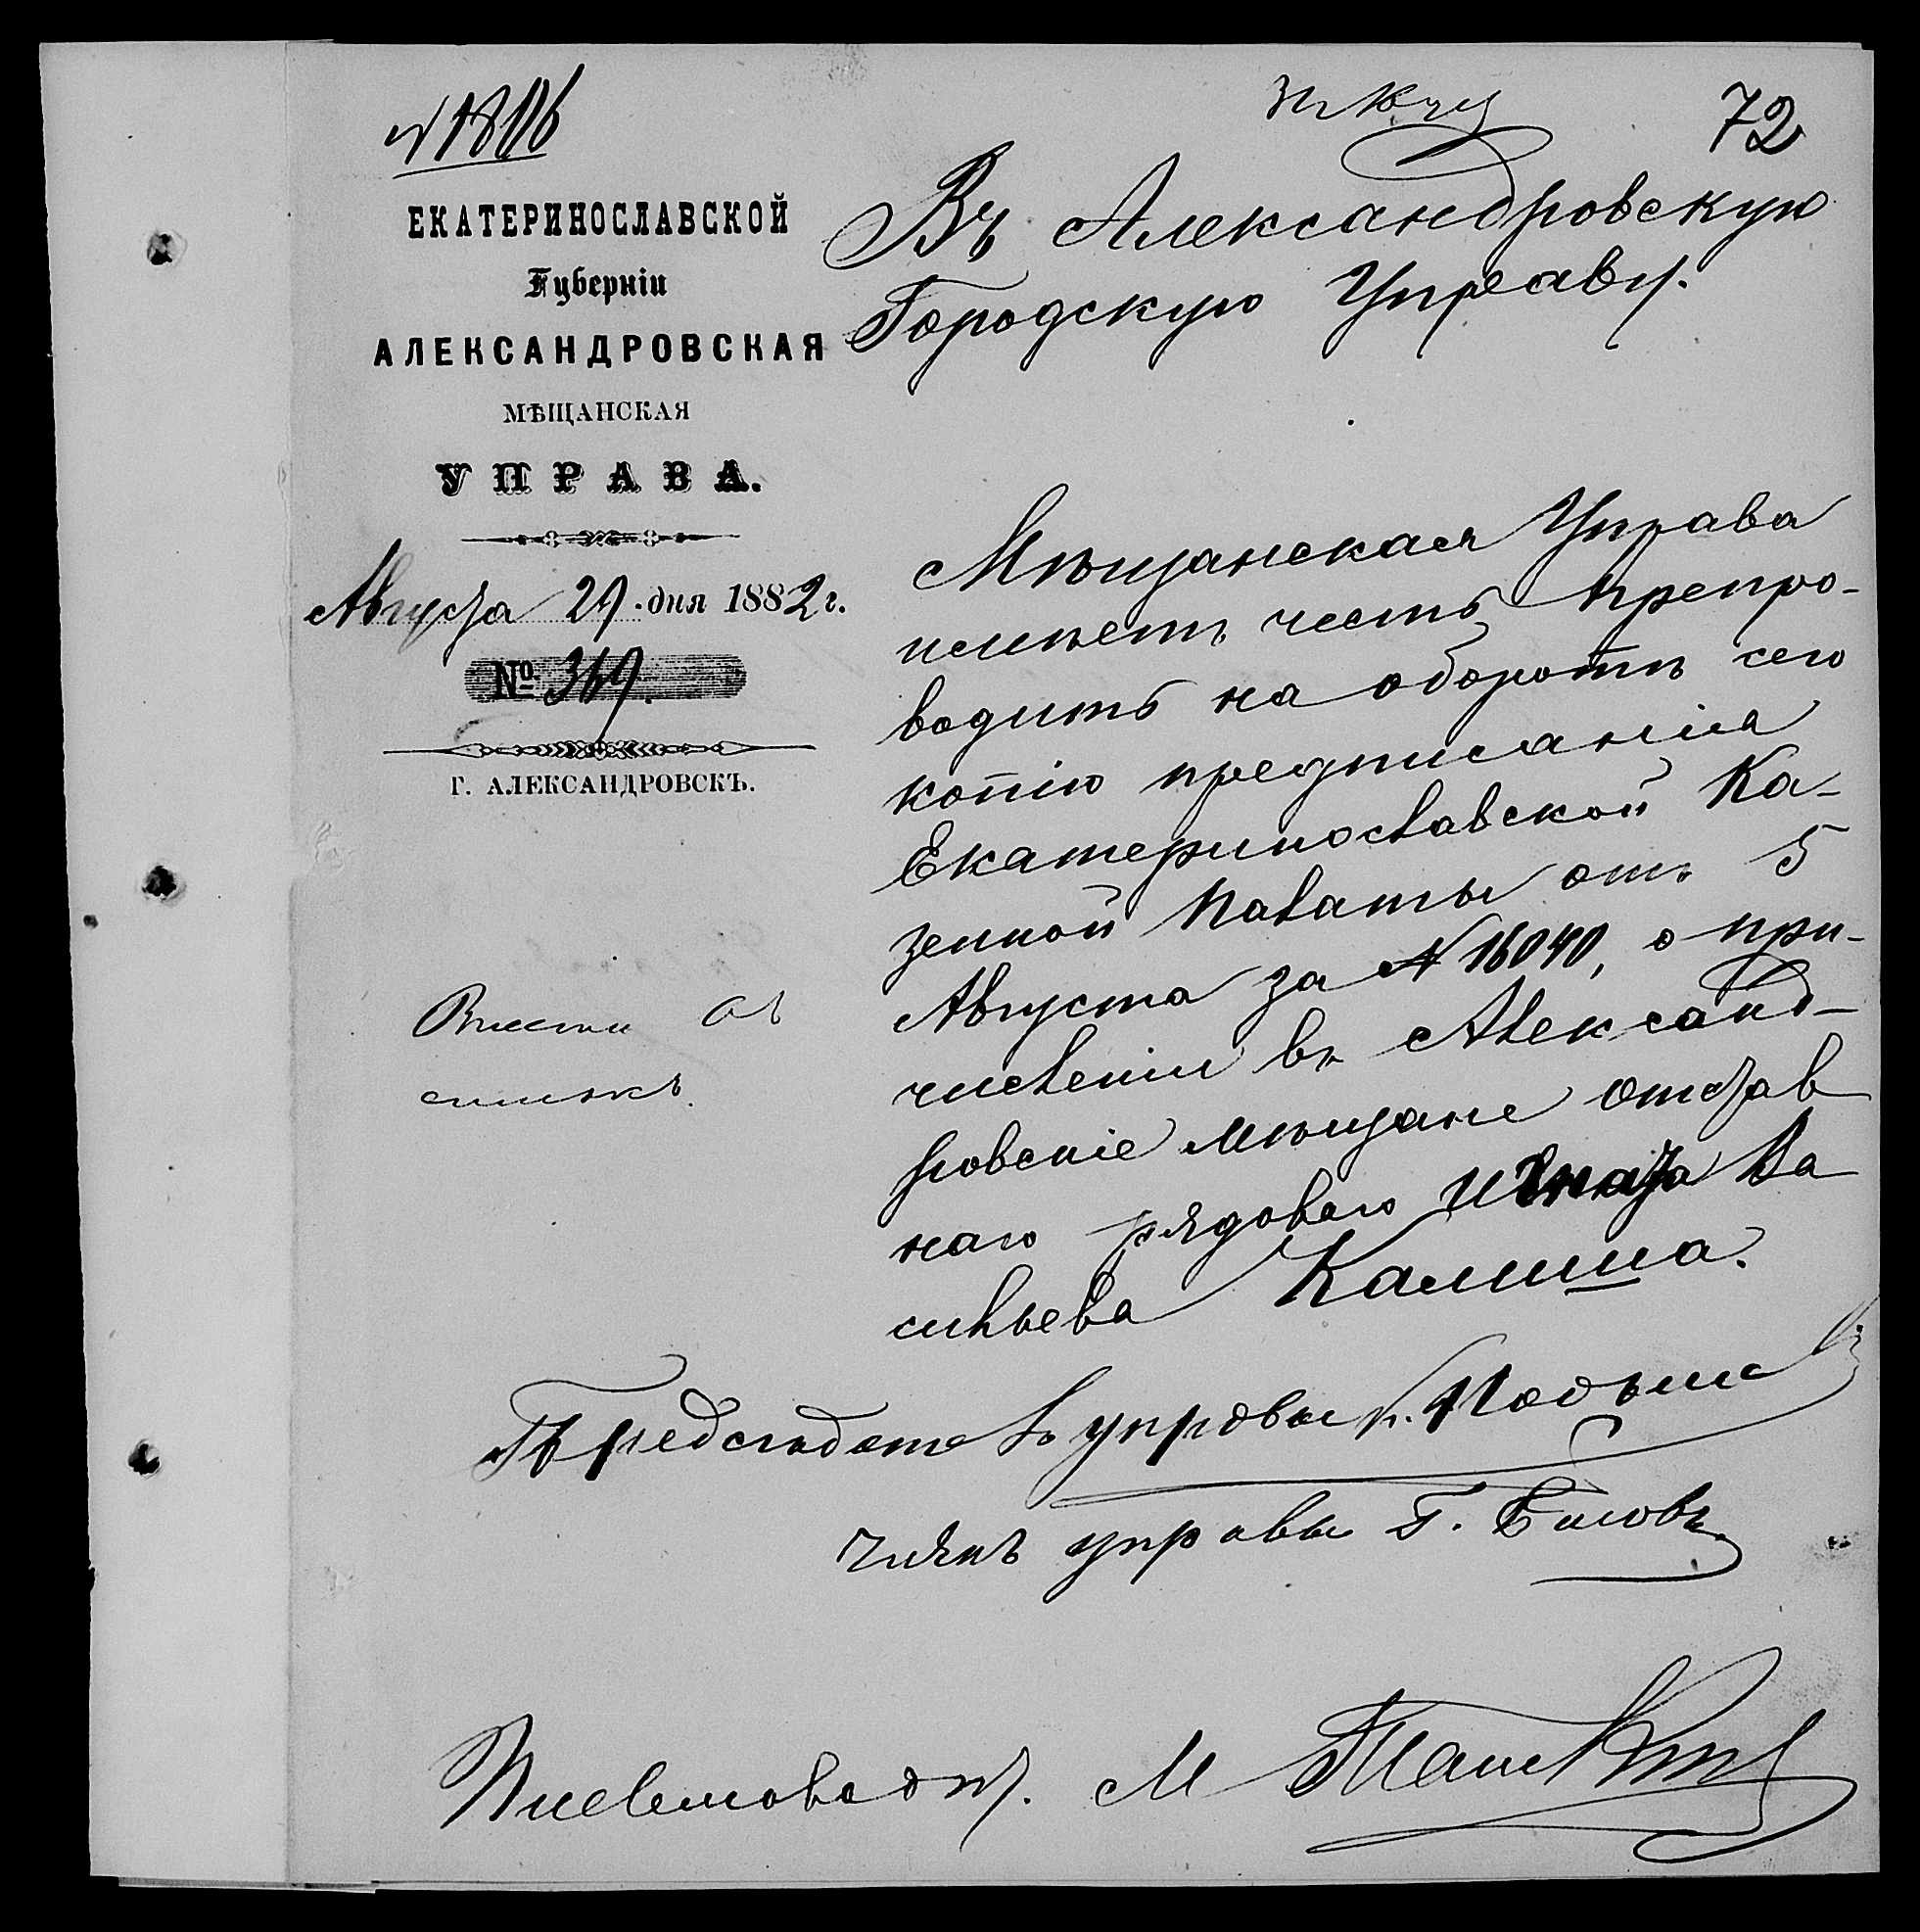 72
ЕКАТЕРИНОСЛАВСКОЙ
Губерніи
АЛЕКСАНДРОВСКАЯ
МѢЩАНСКАЯ
УПРАВА.
Августа 29 дня 1882 г.
№ 369.
Г. АЛЕКСАНДРОВСКЪ.
Внести въ
списокъ.
Въ Александровскую
Городскую Управу.
Мѣщанская Управа
имѣетъ честь препро-
водить на оборотѣ сего
копію предписанія
Екатеринославской Ка-
зенной Палаты отъ 5
Августа за № 16040, о при-
численіи въ Александ-
ровскіе мѣщане отстав
наго рядоваго Игната Ва
сильева
Председатель управы
Членъ управы Г.
Письмоводит. М